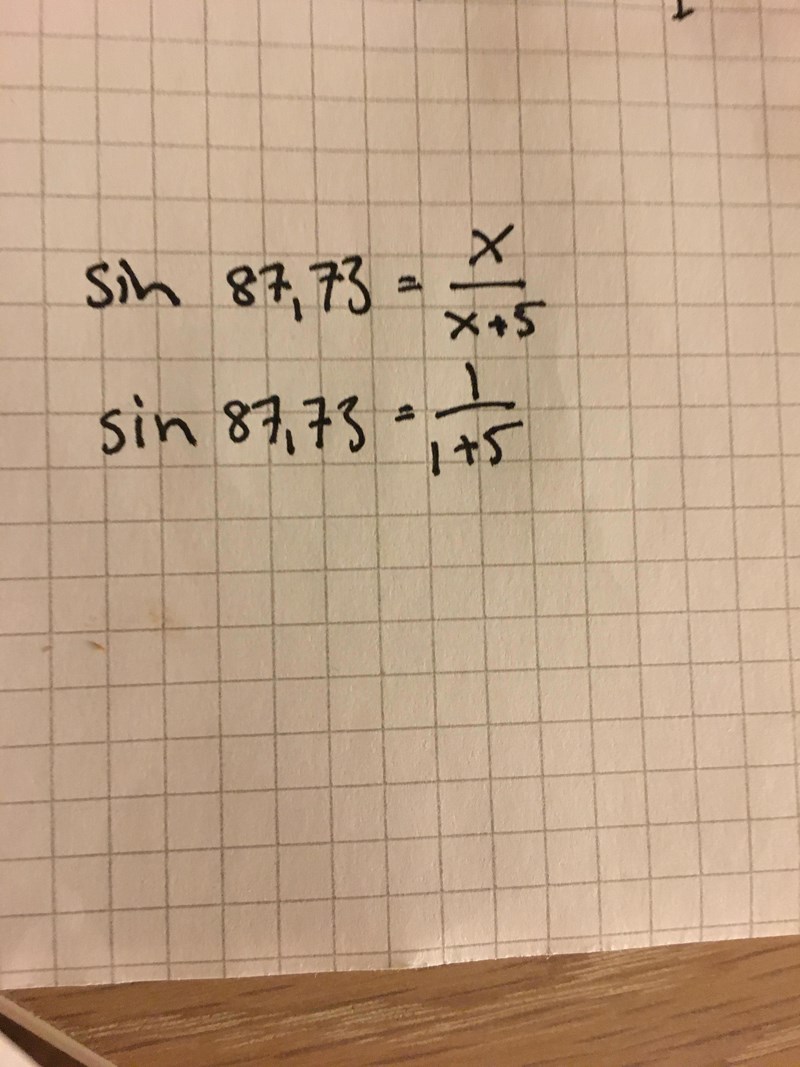 sin 87,73 = x/(x+5)
sin 87,73 = 1/(1+5)